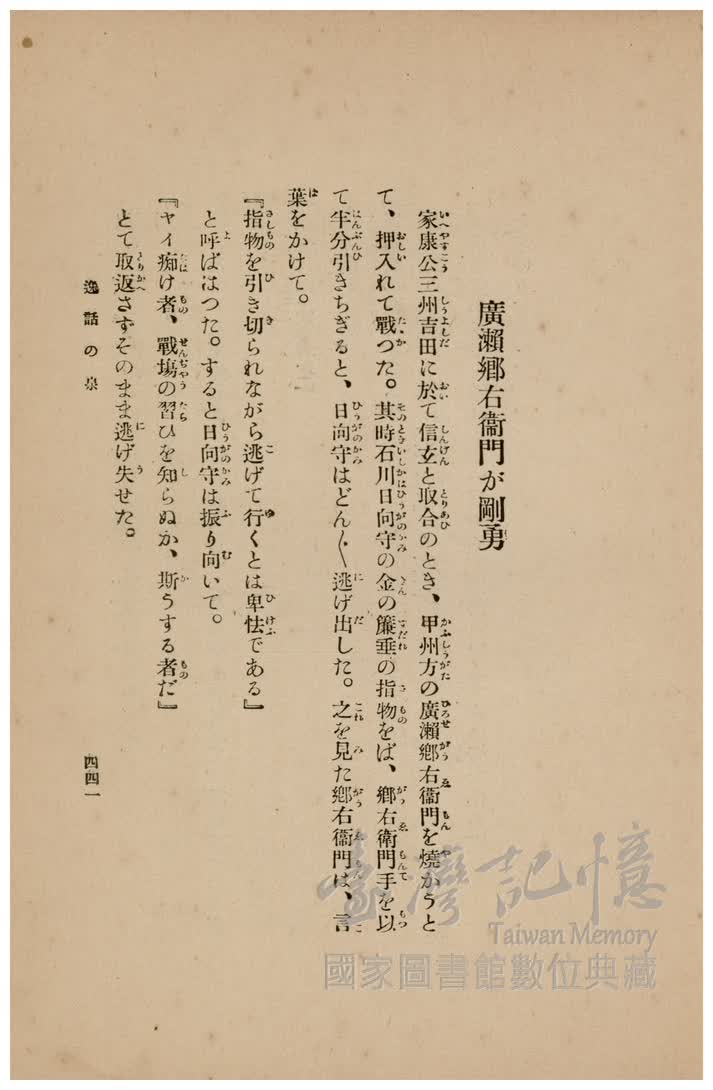 廣瀨鄉右衞門が剛勇
家康公三州吉田に於て信玄と取合のとき、甲州方の廣瀨鄉右衞門を燒かうと
て、押入れて戰つた。其時石川日向守の金の簾埀の指物をば、鄉右衞門手を以
て半分引きちぎると、日向守はどん〳〵逃げ出した。之を見た鄉右衞門は、言
葉をかけて。
『指物を引き切られながら逃げて行くとは卑怯である』
と呼ばはつた。すると日向守は振り向いて。
『ヤイ痴け者、戰塲の習ひを知らぬか、斯うする者だ』
とて取返さずそのまま逃げ失せた。
逸話の泉
四四一
臺灣記憶
Taiwan Memory
國家圖書館數位典藏